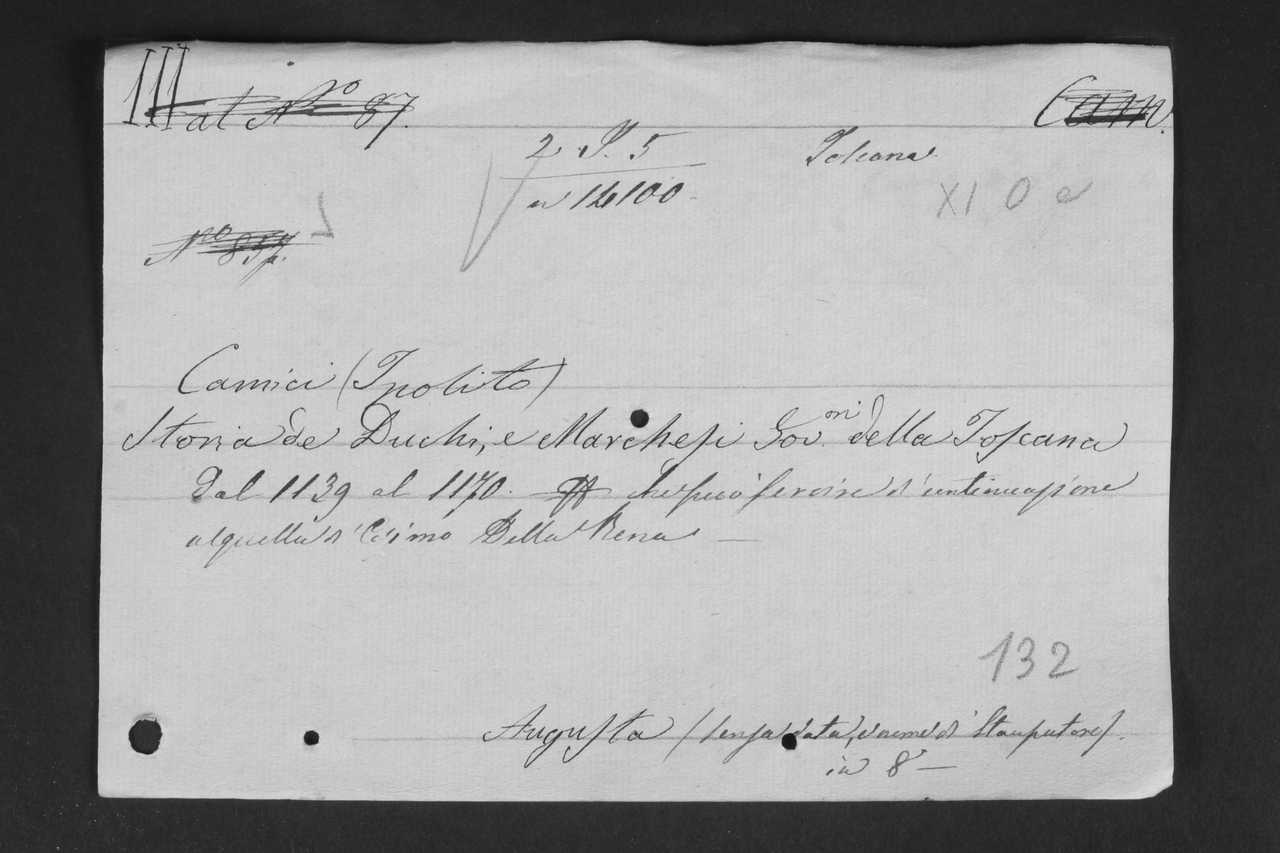 III al Nro 87. Cam.
2 . P. 5 Tolcana
n 14100
XI 0 e
Nro 857.
Camici (Ipolito)
Storia de Duchi, e Marchesi Gov.ori della Toscana
Dal 1139 al 1170. che può servire d'continuazione
a quella d' Cosimo Della Rena —
132
Augusta (senza data, e nome d' Stampatore).
in 8° —